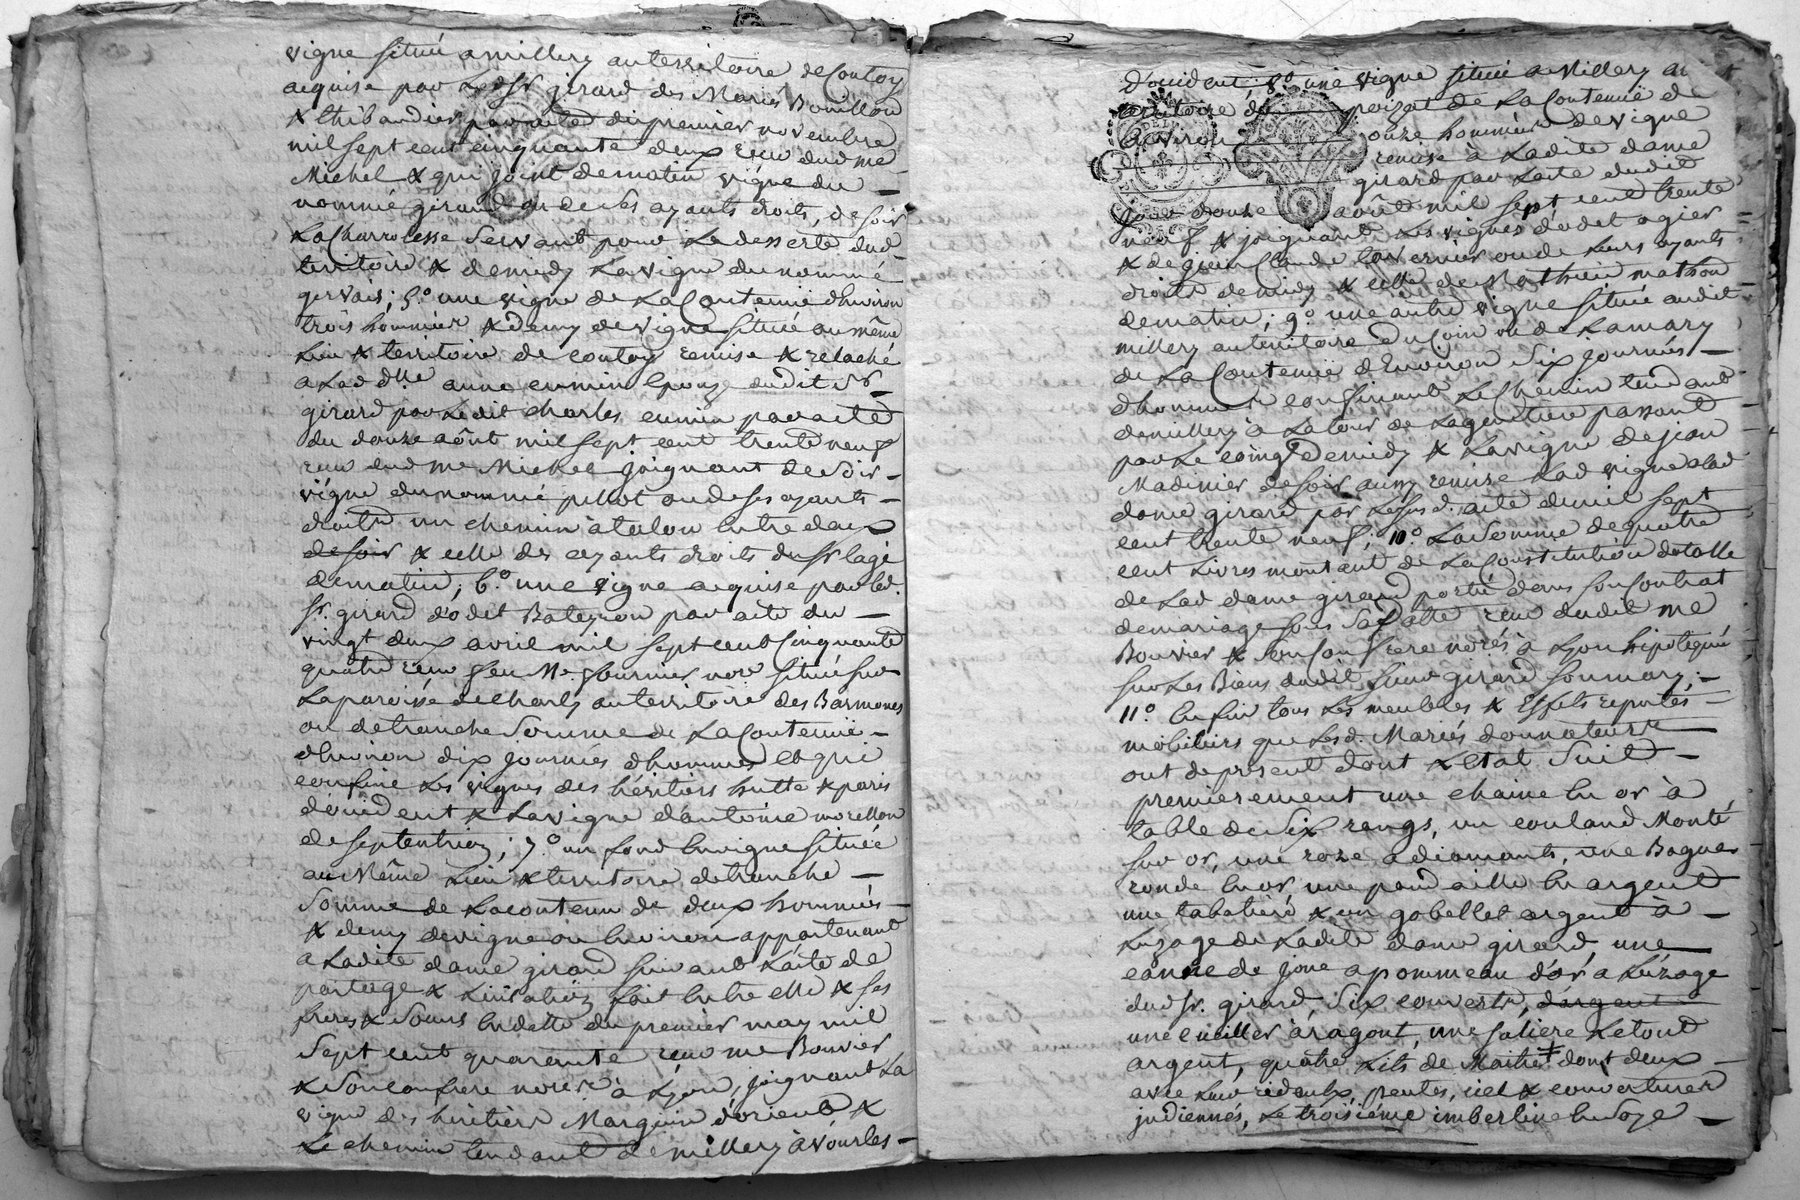 vigne située a millery au territoire de Coutoy
acquise par Ledsr girard des Mariés Bouillon
& thibaudier par acte du premier novembre
mil sept cent cinquante deux recu dud me
Michel & qui joint de matin vigne du
nommé girand ou de ses ayants droits, de soir
La Charrolesse Servant pour Le desserte dud.
territoire & de midy La vigne du nommé
gervais; 5.o une vigne de La Contenue d'huiron
trois hommées & demy de vigne située au même
Lieu & territoire de coutoy remise & relaché
a Lad dlle anne eumin épouze dudit Sr
girard par Ledit charles eumin par acte
du douze août mil sept cent trente neuf
recu dud me Michel joignant de soir
vigne du nommé pillot ou de ses ayants
droits un chemin à talon Entre deux
de soir & celle des ayants droits du Sr lagé
de matin; 6.o une vigne acquise par led.
Sr. girard d'odet Bateyron par acte du
vingt deux avril mil sept cent Cinquante
quatre recu feu Me fournier nore située sur
La paroisse de charly au territoire des Barmones
ou de tranche Somme de La Contenue
d'huiron dix journées d'hommes Et qui
confine Les vignes des héritiers hutte & paris
d'occident & La vigne d'antoine morellon
de septentrion; 7.o un fond En vigne située
au Même Lieu & territoire de tranche
Somme de La contenue de deux hommées
& demy de vigne ou Environ appartenant
a Ladite dame girard suivant L'acte de
partage & Licitation fait Entre elle & ses
freres & Sœurs En datte du premier may mil
Sept cent quarante recu me Bouvier
& Son confrere nores à Lyon, joignant La
vigne des héritiers Marguin d'orient &
Le chemin tendant de millery à vourles
d'occident; 8.o une vigne située a Millery au
territoire du poizat de La Contenue de
Environ onze hommées de vigne
remise à Ladite dame
girard par L'acte dudit
jour douze août mil sept cent trente
neuf & joignant Les vignes d'odet agier
& de jean Claude Cuvernier ou de Leurs ayants
droits de midy & celle de Mathieu mathon
de matin; 9.o une autre vigne située audit
millery au territoire du Coin ou de Lamary
de La Contenue d'Environ Six journées
d'hommes confinant Le Chemin tendant
de millery à La tour de La gentiere passant
par Le coing de midy & La vigne de jean
Madinier de soir aussy remise Lad vigne a Lad
dame girard par Le susd. acte de mil sept
cent trente neuf; 10.o La Somme de quatre
cent Livres montant de La Constitution dotalle
de Lad dame girard porté dans son Contrat
de mariage sous Sa datte recu dudit me
Bouvier & Son Confrere nores à Lyon hipotequé
sur Les Biens dudit sieur girard Son mary;
11.o Enfin tous Les meubles & Effets reputés
mobiliers que Lesd. Mariés donnateurs
ont de present dont L'etat Suit
premierement une chaine En or à
table de Six rangs, un couland Monté
sur or, une roze a diamants, une Bague
ronde En or une pend aille En argent
une tabatiere & un gobellet argent à
L'uzage de Ladite dame girard une
canne de jonc a pommeau d'or a L'uzage
dud Sr. girard, Six couverts, d'argent
une cueiller à ragout, une saliere Le tout
argent, quatre Lits de Maitre dont deux
avec Leur rideaux, pentes, ciel & couvertures
judiennes, Le troisiéme imberline En Soye